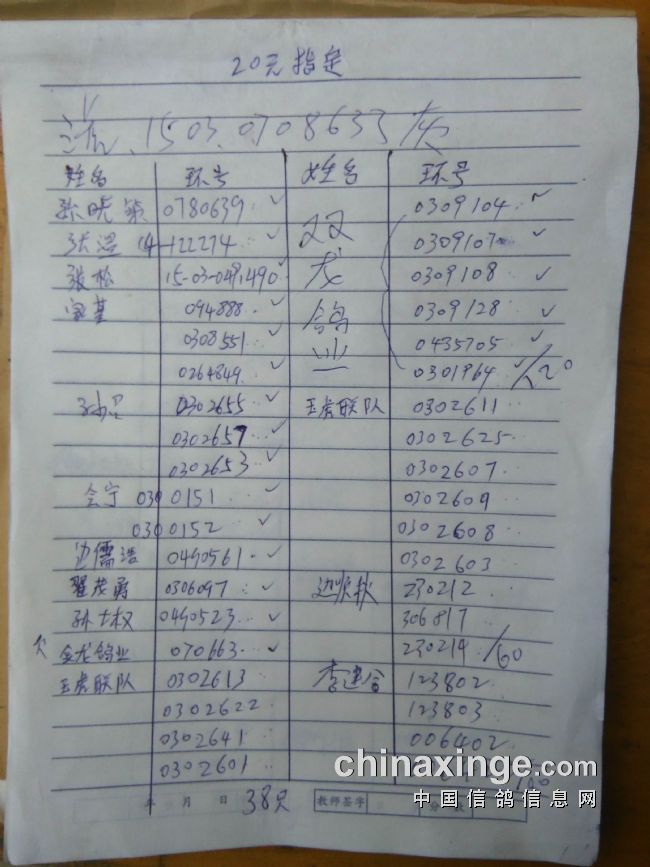 20元指定
15.03.0708633灰
姓名 环号 姓名 环号
0780639 ✓ 双龙鸽业 0309104 ✓
14-122274 ✓ 0309107 ✓
张松 15-03-0491490 ✓ 0309108 ✓
家基 094888 ✓ 0309128 ✓
0308551 ✓ 0435705 ✓
0264849 ✓ 0301964 ✓ /120
0302655 ✓ 王虎联队 0302611
0302657 ✓ 0302625
0302653 ✓ 0302607
会宁 0300151 ✓ 0302609
0300152 ✓ 0302608
边儒浩 0490561 ✓ 0302603
翟茂勇 0306097 ✓ 边顺秋 230212
孙士权 0490523 ✓ 306817
欠 金龙鸽业 070663 ✓ 230214 /60
王虎联队 0302613 李建合 123802
0302622 123803
0302641 006402
0302601
年 月 日 38只 教师签字
chinaxinge.com
中国信鸽信息网